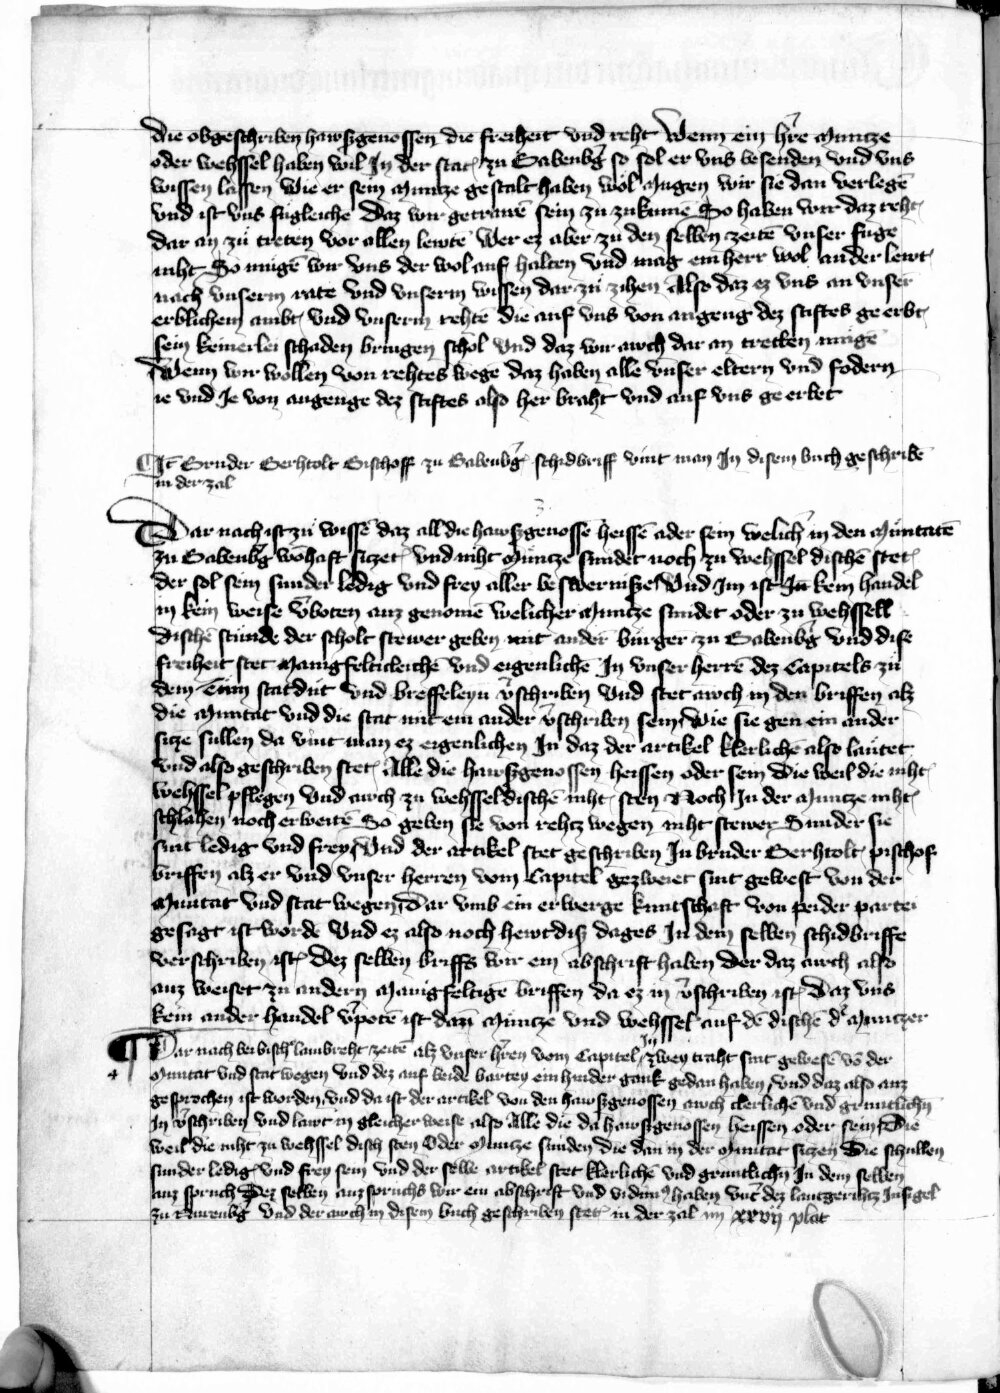 die obgeschriben hawsgenossen die freiheit vnd reht Wenn ein hˀre Muntze
oder wehssel haben wil In der stat zu Babenbˀg so sol er vns besenden vnd vns
wissen lassen Wie er sein Muntze gestalt haben wol Mugen wir sie dan verlegē
vnd ist vns fugleiche Daz wir getrawē sein zu zukumē So haben wir daz reht
dar an zu treten vor allen lewtē Wer ez aber zu den selben zeitē vnser fuge
niht So mugē wir vns der wol auf halten vnd mag ein herr wol ander lewt
nach vnserm rate vnd vnserm wissen dar zu zihen Also daz ez vns an vnser
erblichem ambt vnd vnserm rehte die auf vns von angeng dez stiftes ge erbt
sein keinerlei schaden bringen schol Vnd daz wir awch dar an trecken mugē
Wenn wir wollen von rehtes wege daz haben alle vnser eltern vnd fodern
ie vnd Je von angenge dez stiftes also her braht vnd auf vns ge erbet
It Bruder Berhtolt Bischoff zu Babenbˀg schidbriff vint man In disem buch geschribē
in der zal
Dar nach ist zu wissē daz all die hawsgenosse heissē ader sein welichˀ in den Muntatē
zu Babenbˀg wohaft siczet vnd niht Muncze sundet noch zu wehssel dischē stet
der sol sein sunder ledig vnd frey aller beswernisse Vnd Im ist In kem handel
in kein weise vˀboten auz genomē welicher Muntze sundet oder zu wehssell
dischē stunde der scholt stewer geben mit ander burger zu Babenbˀg vnd dise
freiheit stet Manigfelticleichē vnd eigenlichē In vnser herrē dez Capitels zu
dem Tum statbuͤt vnd breffeleyn vˀschriben Vnd stet awch in den briffen alz
die Muntat vnd die stat mit ein ander vˀschriben sein Wie sie gen ein ander
sicze sullen da vint man ez eigenlichen In daz der artikel klerlichē also lautet
vnd also geschriben stet Alle die hawsgenossen heissen oder sein die weil die niht
wehssel pflegen vnd awch zu wehssel dischē niht sten Noch In der Muntze niht
schlahen noch erbeitē So geben sie von rehtz wegen niht stewer Sunder sie
sint ledig vnd frey Vnd der artikel stet geschriben In bruder Berhtolt pischof
briffen alz er vnd vnser herren vom Capitel gezweiet sint gewest von der
Muntat vnd stat wegen Dar vmb ein erberge kuntschaft von peider partei
gesagt ist wordē Vnd ez also noch hewt diß dages In dem selben schidbriffe
verschriben ist Dez selben briffs wir ein abschrift haben Der daz awch also
auz weiset zu andern Manigfeltigē briffen da ez in vˀschriben ist Daz vns
kein ander handel vˀpotē ist dan Muntze vnd wehssel auf dē dischē dˀ Muntzer
Dar nach bei bischˀ lambreht zeitē alz vnser hˀren vom Capitel In zwey traht sint gewesē vō der
Muntat vnd stat wegen Vnd dez auf beide bartey ein hinder gank gedan haben vnd daz also auz
gesprochen ist worden vnd da ist der artikel von den hawsgenossen awch clerlichē vnd gruntlichn
In vˀschriben vnd lawt in gleicher weise also Alle die da hawsgenossen heissen oder sein Die
weil die niht zu wehssel disch sten Oder Muntze sunden die dan in der Muntat siczen Die schullen
sunder ledig vnd frey sein Vnd der selbe artikel stet klerlichē vnd gruntlichn In dem selben
auz spruch Dez selben auz spruchs wir ein abschrift vnd vidimˀ haben vntˀ dez lantgerihtz Insigel
zu Nurenbˀg Vnd der awch in disem buch geschriben stet in der zal im xxvij plat
4